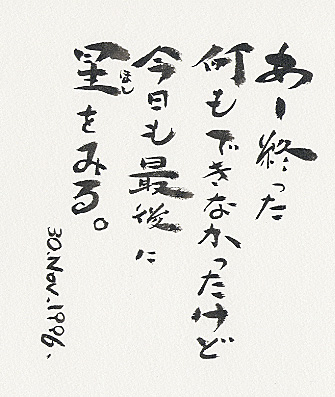 あー終った
何もできなかったけど
今日も最後に
星をみる。
ほし
30.Nov.1996.